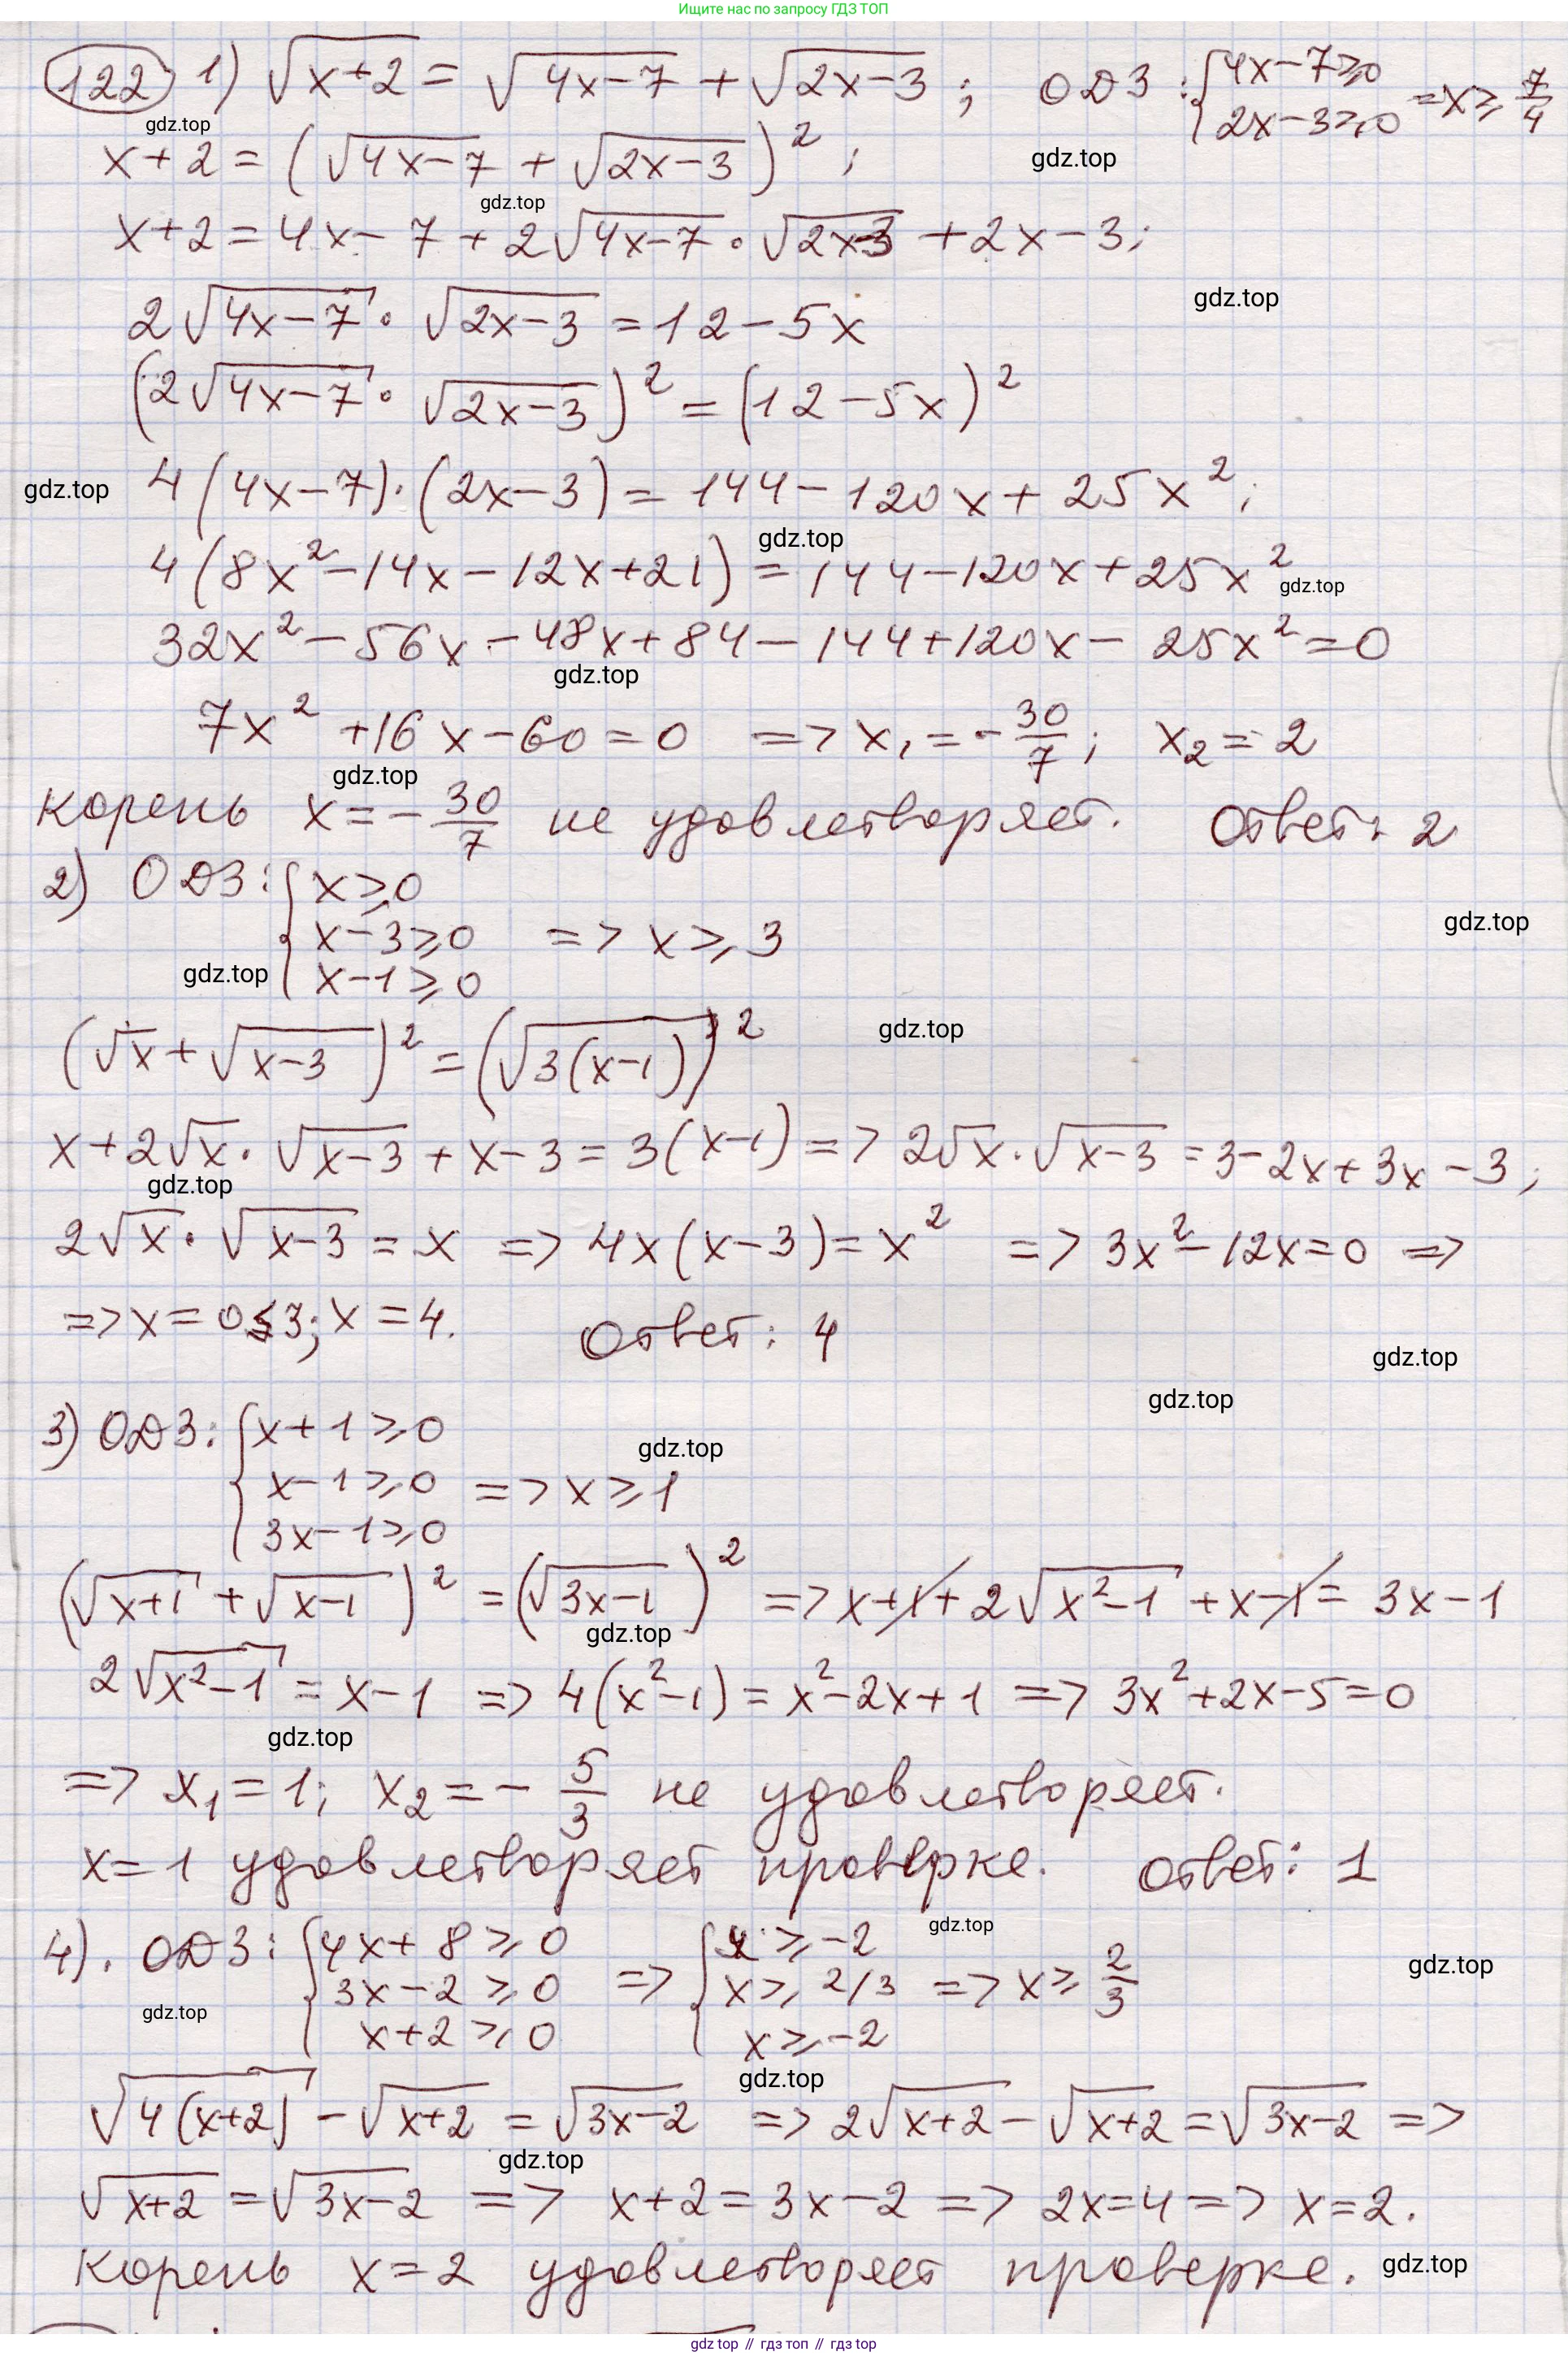 Ищите нас по запросу ГДЗ ТОП
122 1) √(x+2) = √(4x−7) + √(2x−3) ; ОДЗ : { 4x−7⩾0 2x−3⩾0 => x⩾ 7/4
gdz.top
x+2 = (√(4x−7) + √(2x−3))² ; gdz.top
gdz.top
x+2 = 4x−7 + 2√(4x−7) • √(2x−3) + 2x−3;
gdz.top
2√(4x−7) • √(2x−3) = 12−5x
(2√(4x−7) • √(2x−3))² = (12−5x)²
gdz.top 4(4x−7)·(2x−3) = 144−120x+25x² ;
gdz.top
4(8x²−14x−12x+21) = 144−120x+25x² gdz.top
32x²−56x−48x+84−144+120x−25x²=0
gdz.top
7x²+16x−60=0 => x₁=−30/7; x₂=2
gdz.top
корень x=−30/7 не удовлетворяет. Ответ: 2
2) ОДЗ: { x⩾0
x−3⩾0 => x⩾3 gdz.top
gdz.top x−1⩾0
(√x+√(x−3))²=(√(3(x−1)))² gdz.top
x+2√x·√(x−3)+x−3=3(x−1) => 2√x·√(x−3)=3−2x+3x−3;
gdz.top
2√x·√(x−3)=x => 4x(x−3)=x² => 3x²−12x=0 =>
=> x=0≤3; x=4. Ответ: 4
gdz.top
gdz.top
3) ОДЗ: { x+1⩾0 gdz.top
x−1⩾0 => x⩾1
3x−1⩾0
(√(x+1)+√(x−1))²=(√(3x−1))² => x+1+2√(x²−1)+x−1=3x−1
gdz.top
2√(x²−1)=x−1 => 4(x²−1)=x²−2x+1 => 3x²+2x−5=0
gdz.top
=> x₁=1; x₂=−5/3 не удовлетворяет.
x=1 удовлетворяет проверке. Ответ: 1
gdz.top
4). ОДЗ: { 4x+8⩾0 { x⩾−2
3x−2⩾0 => x⩾2/3 => x⩾2/3 gdz.top
gdz.top x+2⩾0 x⩾−2
gdz.top
√(4(x+2))−√(x+2)=√(3x−2) => 2√(x+2)−√(x+2)=√(3x−2) =>
gdz.top
√(x+2)=√(3x−2) => x+2=3x−2 => 2x=4 => x=2.
Корень x=2 удовлетворяет проверке. gdz.top
gdz top // гдз топ // gdz top